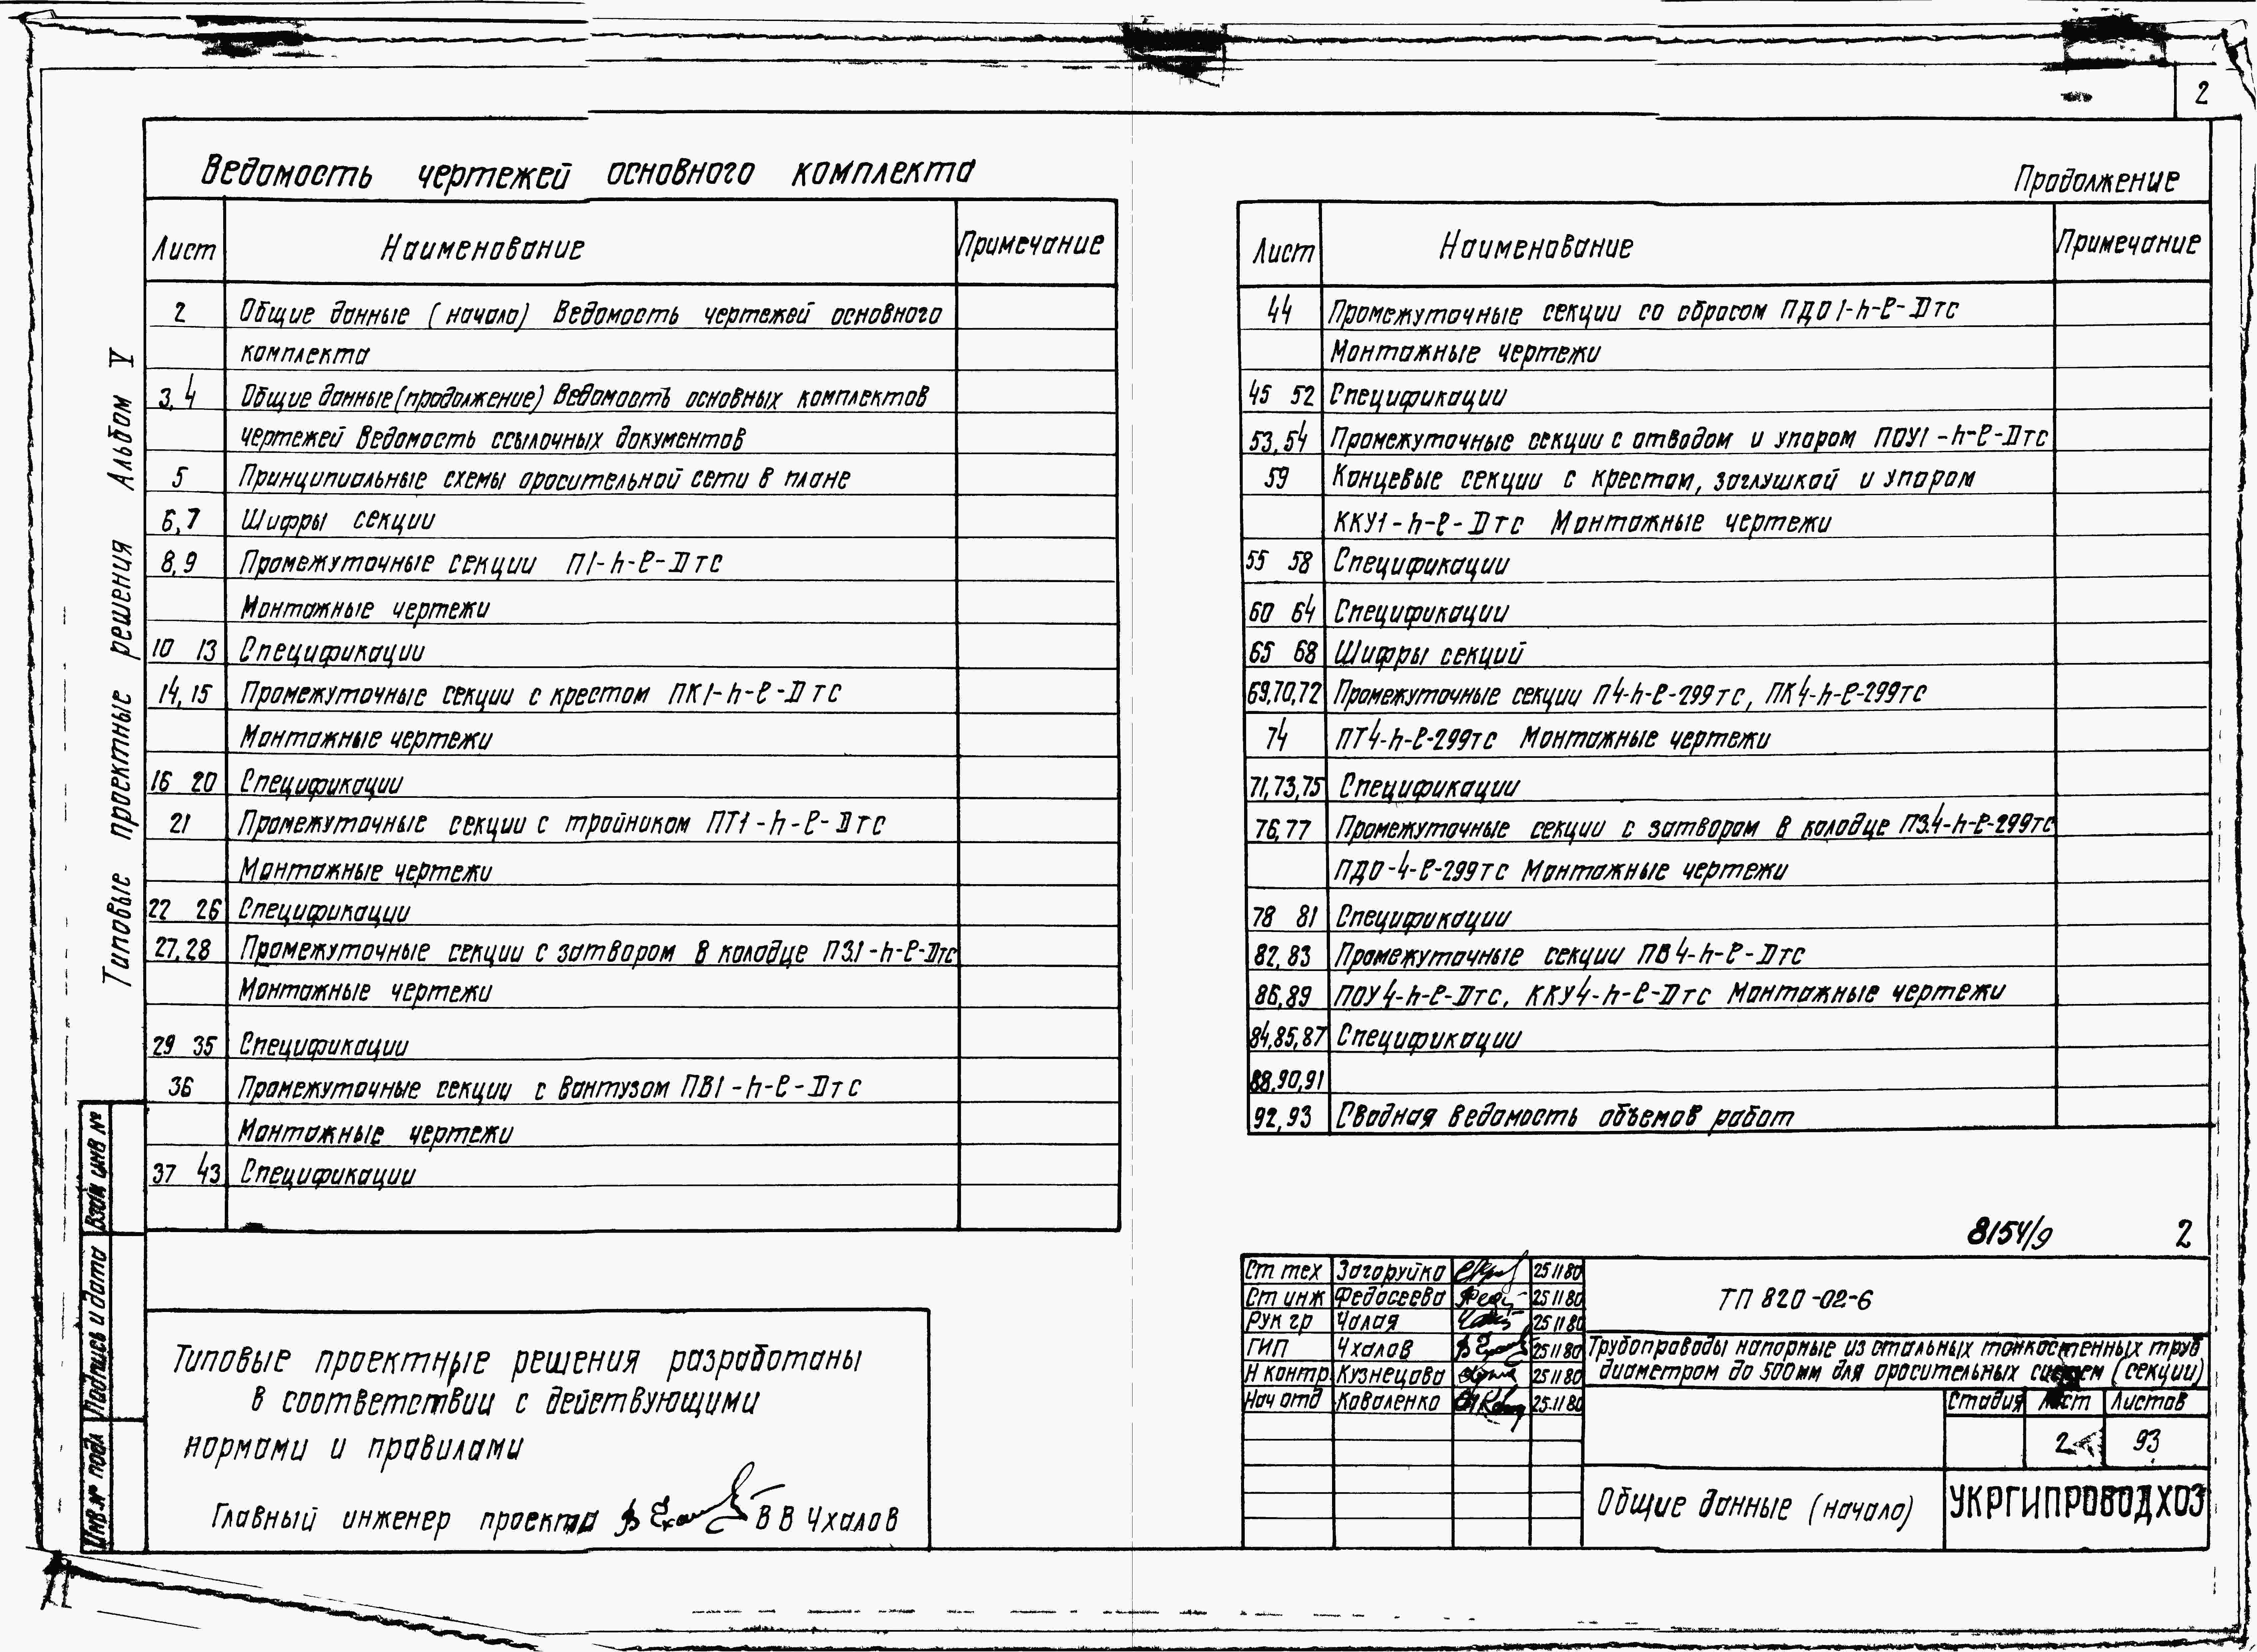 2
Ведомость чертежей основного комплекта
Лист Наименование Примечание
2 Общие данные (начало) Ведомость чертежей основного
комплекта
3,4 Общие данные (продолжение) Ведомость основных комплектов
чертежей Ведомость ссылочных документов
5 Принципиальные схемы оросительной сети в плане
6,7 Шифры секции
8,9 Промежуточные секции П1-h-ℓ-Dтс
Монтажные чертежи
10 13 Спецификации
14,15 Промежуточные секции с крестом ПК1-h-ℓ-Dтс
Монтажные чертежи
16 20 Спецификации
21 Промежуточные секции с тройником ПТ1-h-ℓ-Dтс
Монтажные чертежи
22 26 Спецификации
27,28 Промежуточные секции с затвором в колодце ПЗ.1-h-ℓ-Dтс
Монтажные чертежи
29 35 Спецификации
36 Промежуточные секции с вантузом ПВ1-h-ℓ-Dтс
Монтажные чертежи
37 43 Спецификации
Продолжение
Лист Наименование Примечание
44 Промежуточные секции со сбросом ПДО1-h-ℓ-Dтс
Монтажные чертежи
45 52 Спецификации
53,54 Промежуточные секции с отводом и упором ПОУ1-h-ℓ-Dтс
59 Концевые секции с крестом, заглушкой и упором
ККУ1-h-ℓ-Dтс Монтажные чертежи
55 58 Спецификации
60 64 Спецификации
65 68 Шифры секций
69,70,72 Промежуточные секции П4-h-ℓ-299тс, ПК4-h-ℓ-299тс
74 ПТ4-h-ℓ-299тс Монтажные чертежи
71,73,75 Спецификации
76,77 Промежуточные секции с затвором в колодце ПЗ.4-h-ℓ-299тс
ПДО-4-ℓ-299тс Монтажные чертежи
78 81 Спецификации
82,83 Промежуточные секции ПВ4-h-ℓ-Dтс
86,89 ПОУ4-h-ℓ-Dтс, ККУ4-h-ℓ-Dтс Монтажные чертежи
84,85,87 Спецификации
88,90,91
92,93 Сводная ведомость объемов работ
Типовые проектные решения Альбом V
Взам инв №
Подпись и дата
Инв.№ подл
Типовые проектные решения разработаны
в соответствии с действующими
нормами и правилами
Главный инженер проекта В В Чхалов
8154/9 2
Ст тех Загоруйко 25 11 80
Ст инж Федосеева 25 11 80
Рук гр Чалая 25 11 80
ГИП Чхалов 25 11 80
Н контр Кузнецова 25 11 80
Нач отд Коваленко 25.11 80
ТП 820-02-6
Трубопроводы напорные из стальных тонкостенных труб
диаметром до 500мм для оросительных систем (секции)
Стадия Лист Листов
2 93
Общие данные (начало)
УКРГИПРОВОДХОЗ